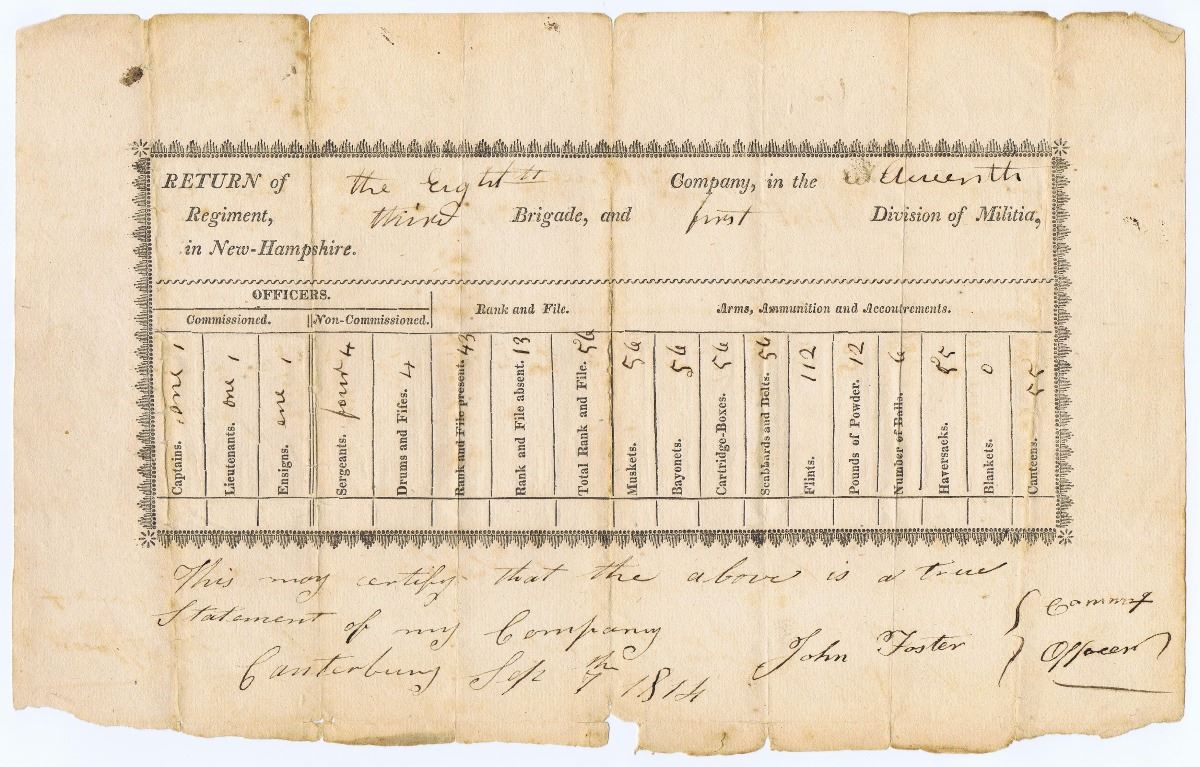 RETURN of the Eighth Company, in the Eleventh
Regiment, third Brigade, and first Division of Militia,
in New-Hampshire.
OFFICERS.
Commissioned. Non-Commissioned. Rank and File. Arms, Ammunition and Accoutrements.
Captains. one 1
Lieutenants. one 1
Ensigns. one 1
Sergeants. four 4
Drums and Fifes. 4
Rank and File present. 43
Rank and File absent. 13
Total Rank and File. 56
Muskets. 56
Bayonets. 56
Cartridge-Boxes. 56
Scabbards and Belts. 56
Flints. 112
Pounds of Powder. 12
Number of Balls. 6
Haversacks. 55
Blankets. 0
Canteens. 55
This may certify that the above is a true
Statement of my Company
John Foster
Canterbury Sep 7th 1814